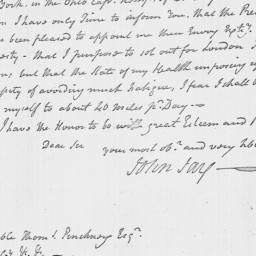 York, in the Ohio Capt.
I have only Time to inform You, that the Pre
been pleased to appoint me then Envoy Extr.
sty - that I purpose to set out for London
, but that the State of my Health imposing
sity of avoiding much fatigue, I fear I shall
myself to about 40 miles pr. Day.—
I have the Honor to be with great Esteem and
Dear Sir
your most obt. and very
John Jay —
ble Thom. s. Pinckney Esqr.